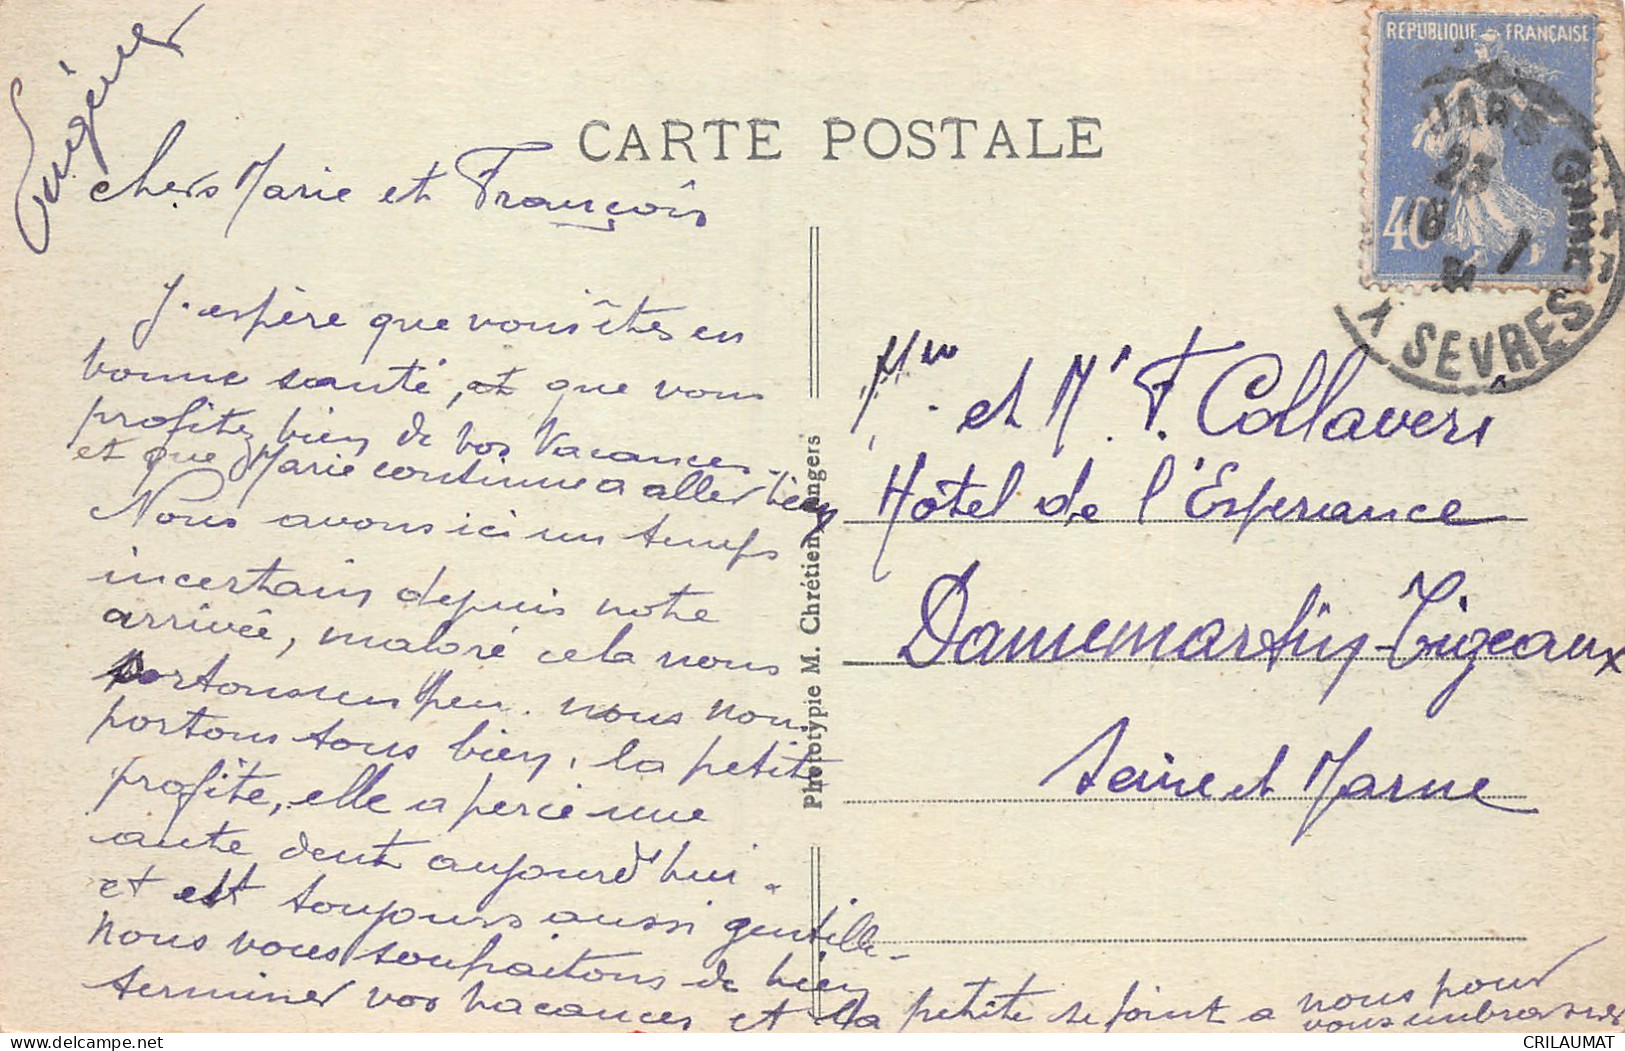 Eugénie
CARTE POSTALE
REPUBLIQUE FRANÇAISE
40
23
8
SEVRES
chers Marie et François
J'espère que vous êtes en
bonne santé, et que vous
profitez bien de vos vacances
et que Marie continue a aller bien
Nous avons ici un temps
incertain depuis notre
arrivée, malgré cela nous
sortons un peu. nous nous
portons tous bien, la petite
profite, elle a percé une
autre dent aujourd'hui.
et est toujours aussi gentille
nous vous souhaitons de bien
terminer vos vacances et la petite se joint a nous pour
vous embrasser
Phototypie M. Chrétien, Angers
Mme et Mr F. Collaveri
Hôtel de l'Esperance
Dammemartin-Tigeaux
Seine et Marne
CRILAUMAT